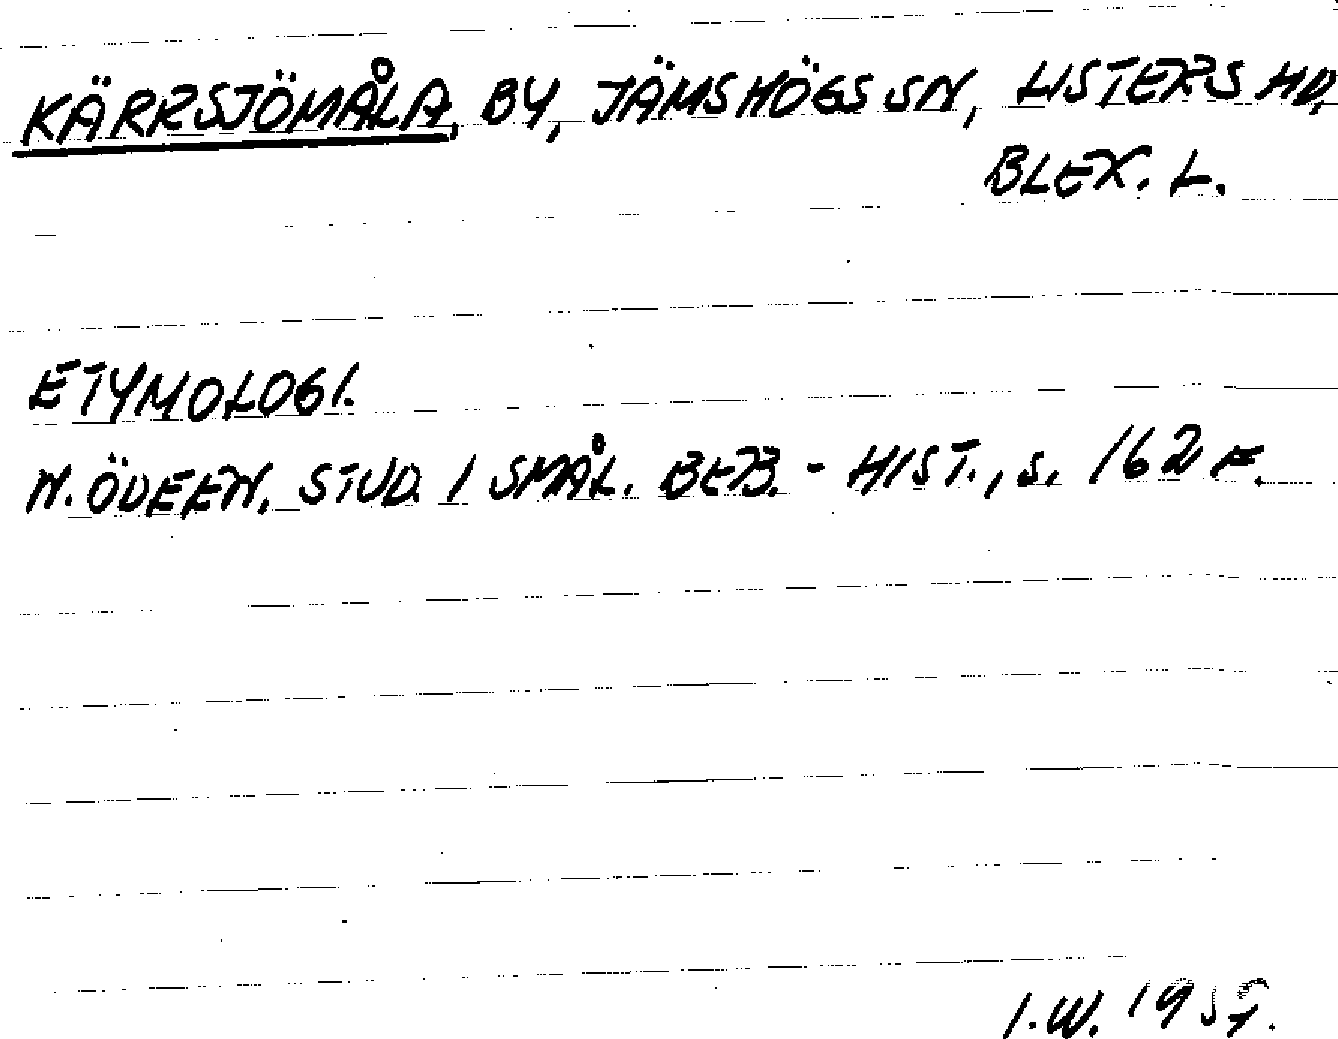 KÄRRSJÖMÅLA, BY, JÄMSHÖGS SN, LISTERS HD,
BLEK. L.
ETYMOLOGI.
N. ÖDEEN, STUD. I SMÅL. BEB. - HIST., S. 162 F.
I. W.